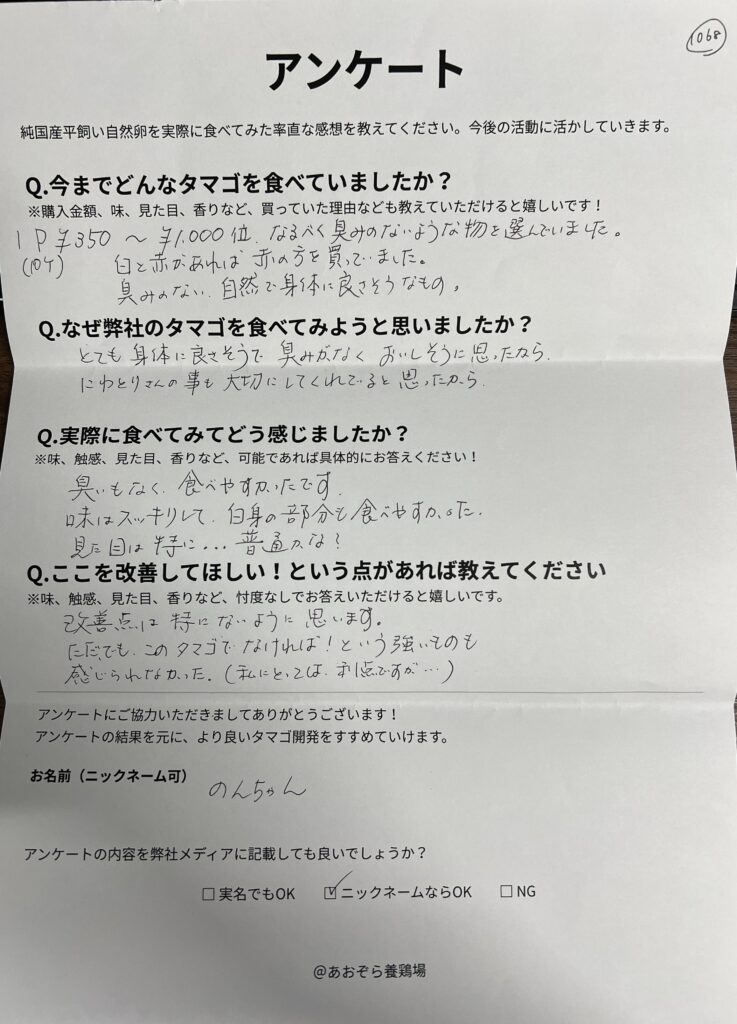 1068
アンケート
純国産平飼い自然卵を実際に食べてみた率直な感想を教えてください。今後の活動に活かしていきます。
Q.今までどんなタマゴを食べていましたか？
※購入金額、味、見た目、香りなど、買っていた理由なども教えていただけると嬉しいです！
1P ¥350 〜 ¥1,000位、なるべく臭みのないような物を選んでいました。
(10ケ) 白と赤があれば 赤の方を買っていました。
臭みのない、自然で身体に良さそうなもの。
Q.なぜ弊社のタマゴを食べてみようと思いましたか？
とても身体に良さそうで 臭みがなく おいしそうに思ったから。
にわとりさんの事も大切にしてくれていると思ったから。
Q.実際に食べてみてどう感じましたか？
※味、触感、見た目、香りなど、可能であれば具体的にお答えください！
臭いもなく、食べやすかったです。
味はスッキリして、白身の部分も食べやすかった。
見た目は特に... 普通かな？
Q.ここを改善してほしい！という点があれば教えてください
※味、触感、見た目、香りなど、忖度なしでお答えいただけると嬉しいです。
改善点は特にないように思います。
ただ、でも、このタマゴでなければ！という強いものも
感じられなかった。(私にとっては、利点ですが…)
アンケートにご協力いただきましてありがとうございます！
アンケートの結果を元に、より良いタマゴ開発をすすめていけます。
お名前（ニックネーム可） のんちゃん
アンケートの内容を弊社メディアに記載しても良いでしょうか？
□ 実名でもOK ☑ ニックネームならOK □ NG
@あおぞら養鶏場